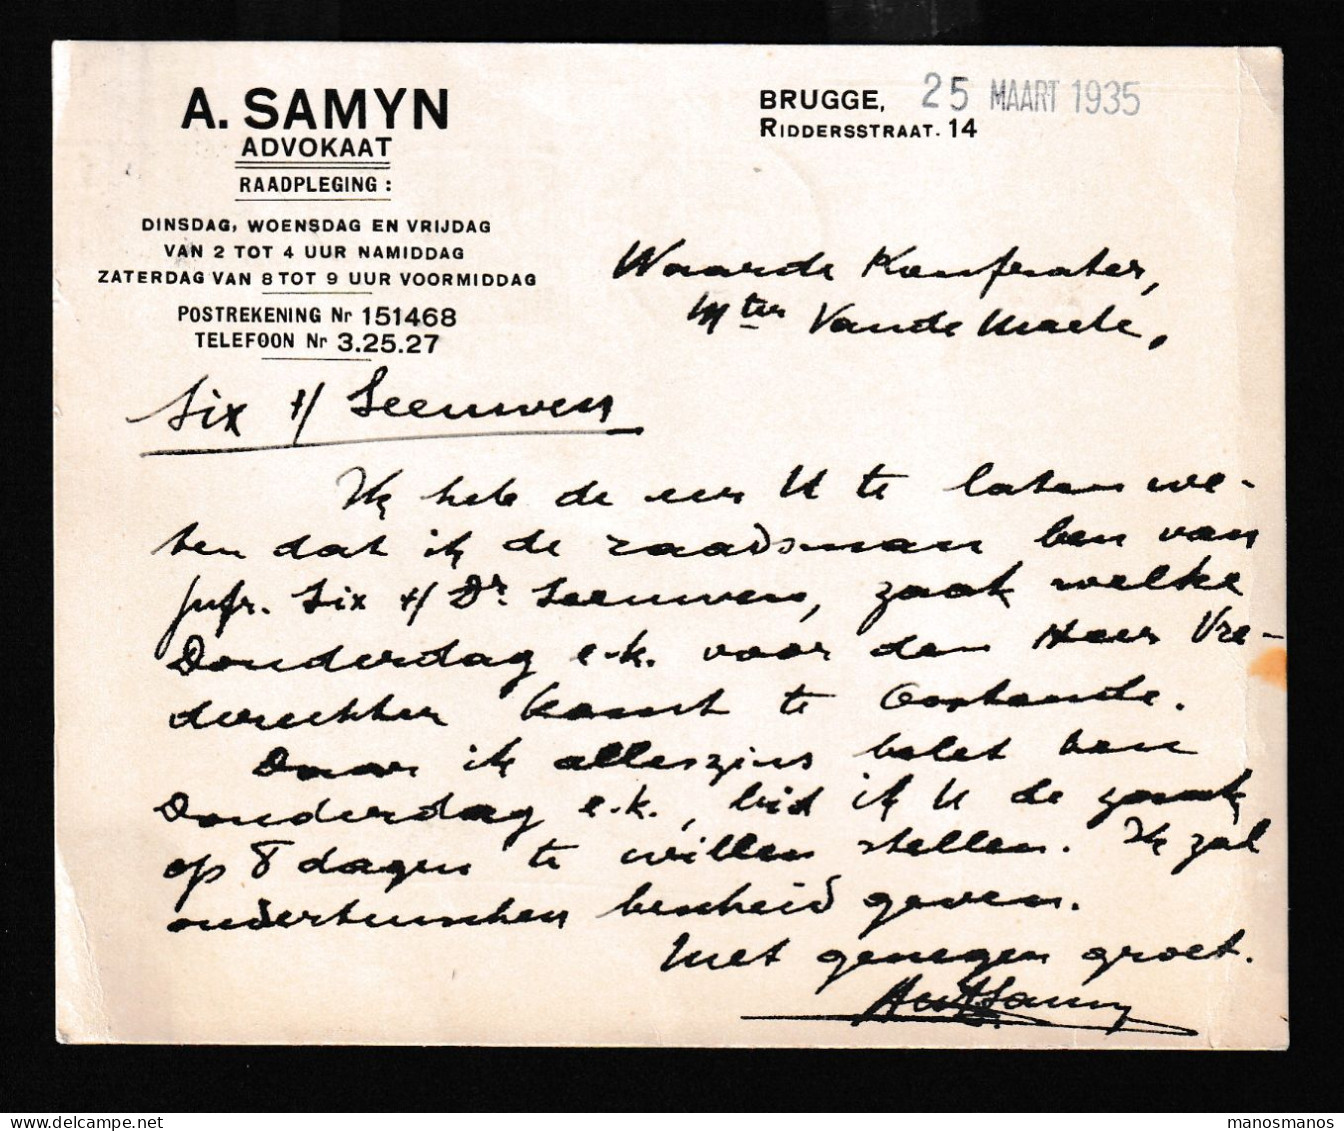 A. SAMYN
ADVOKAAT
RAADPLEGING :
DINSDAG, WOENSDAG EN VRIJDAG
VAN 2 TOT 4 UUR NAMIDDAG
ZATERDAG VAN 8 TOT 9 UUR VOORMIDDAG
POSTREKENING Nr 151468
TELEFOON Nr 3.25.27
BRUGGE, 25 MAART 1935
RIDDERSSTRAAT. 14
Waarde Konfrater,
Mter Vande Maele,
Six t/ Leeuwen
Ik heb de eer U te laten we-
ten dat ik de raadsman ben van
Jufr. Six t/ Dr. Leeuwen, zaak welke
Donderdag e.k. voor den Heer Vre-
derechter komt te Oostende.
Daar ik alleszins belet ben
Donderdag e.k., bid ik U de zaak
op 8 dagen te willen stellen. Ik zal
ondertusschen bescheid geven.
Met genegen groet.
Samyn
manosmanos